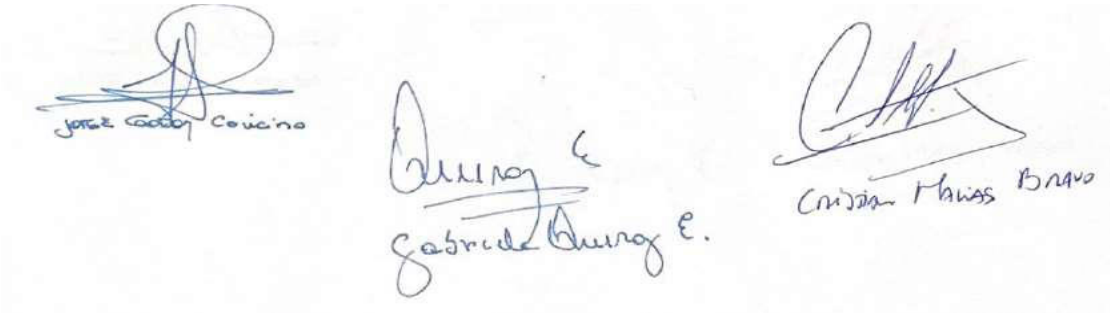 Jorge Conino
Quiroz E
Gabriela Quiroz E.
Cristian Macias Bravo